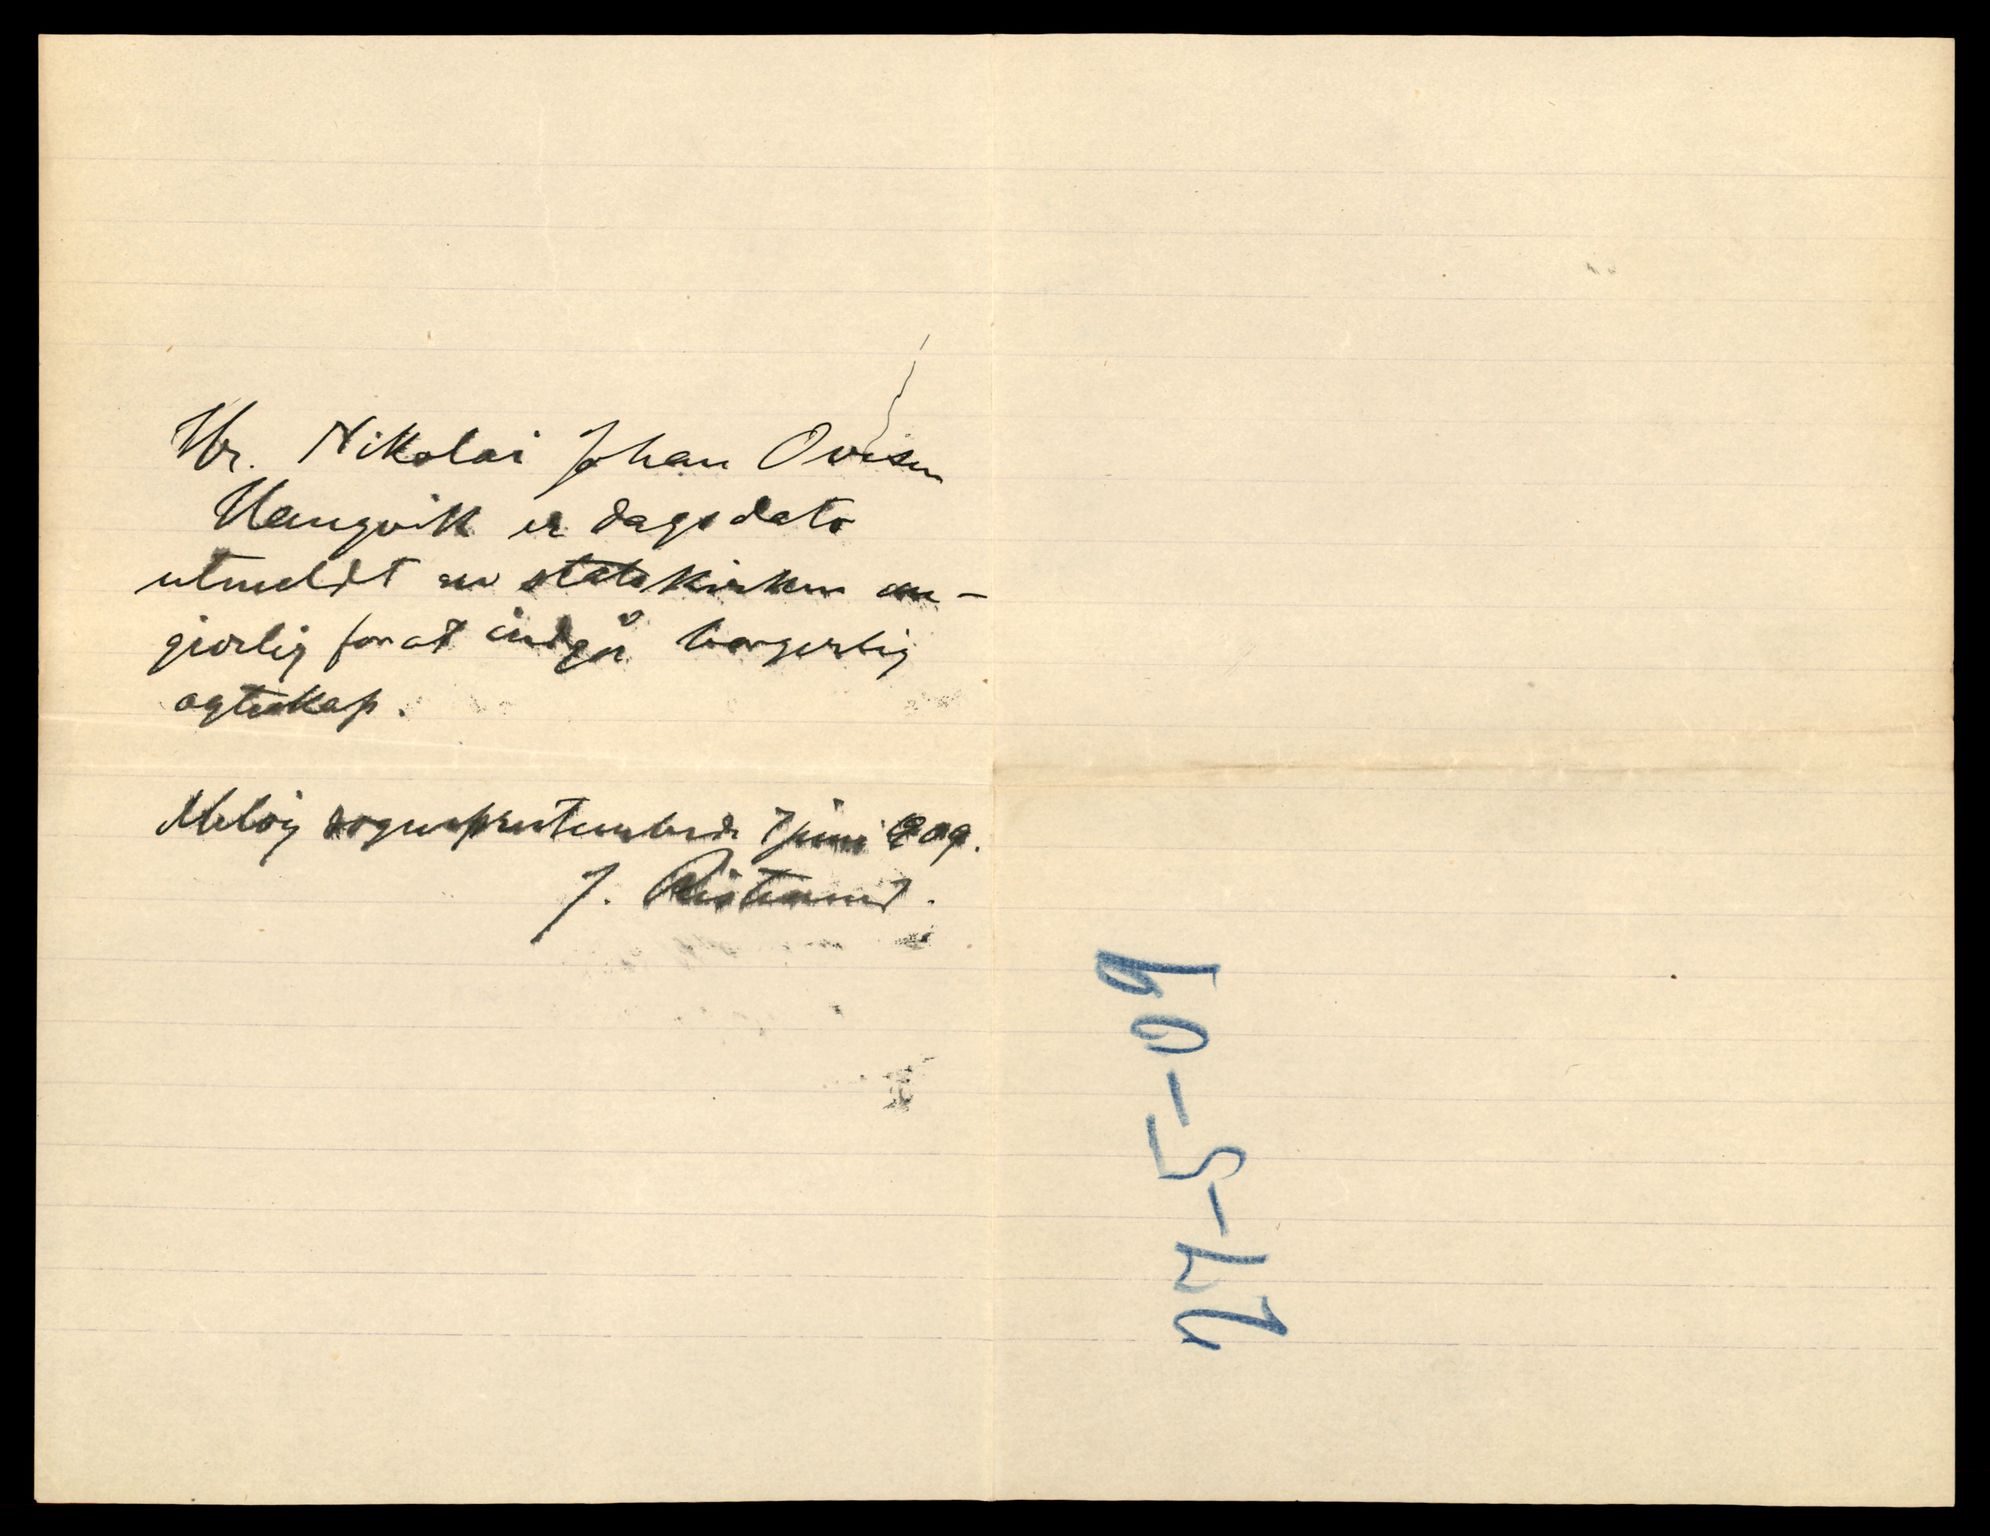 Hr. Nikolai Johan Ovesen
Haugvik er dagsdato
utmeldt av statskirken an-
givelig for at indgå borgerlig
egteskap.
Meløy sogneprestembede 7 juni 909.
J.
27-5-09